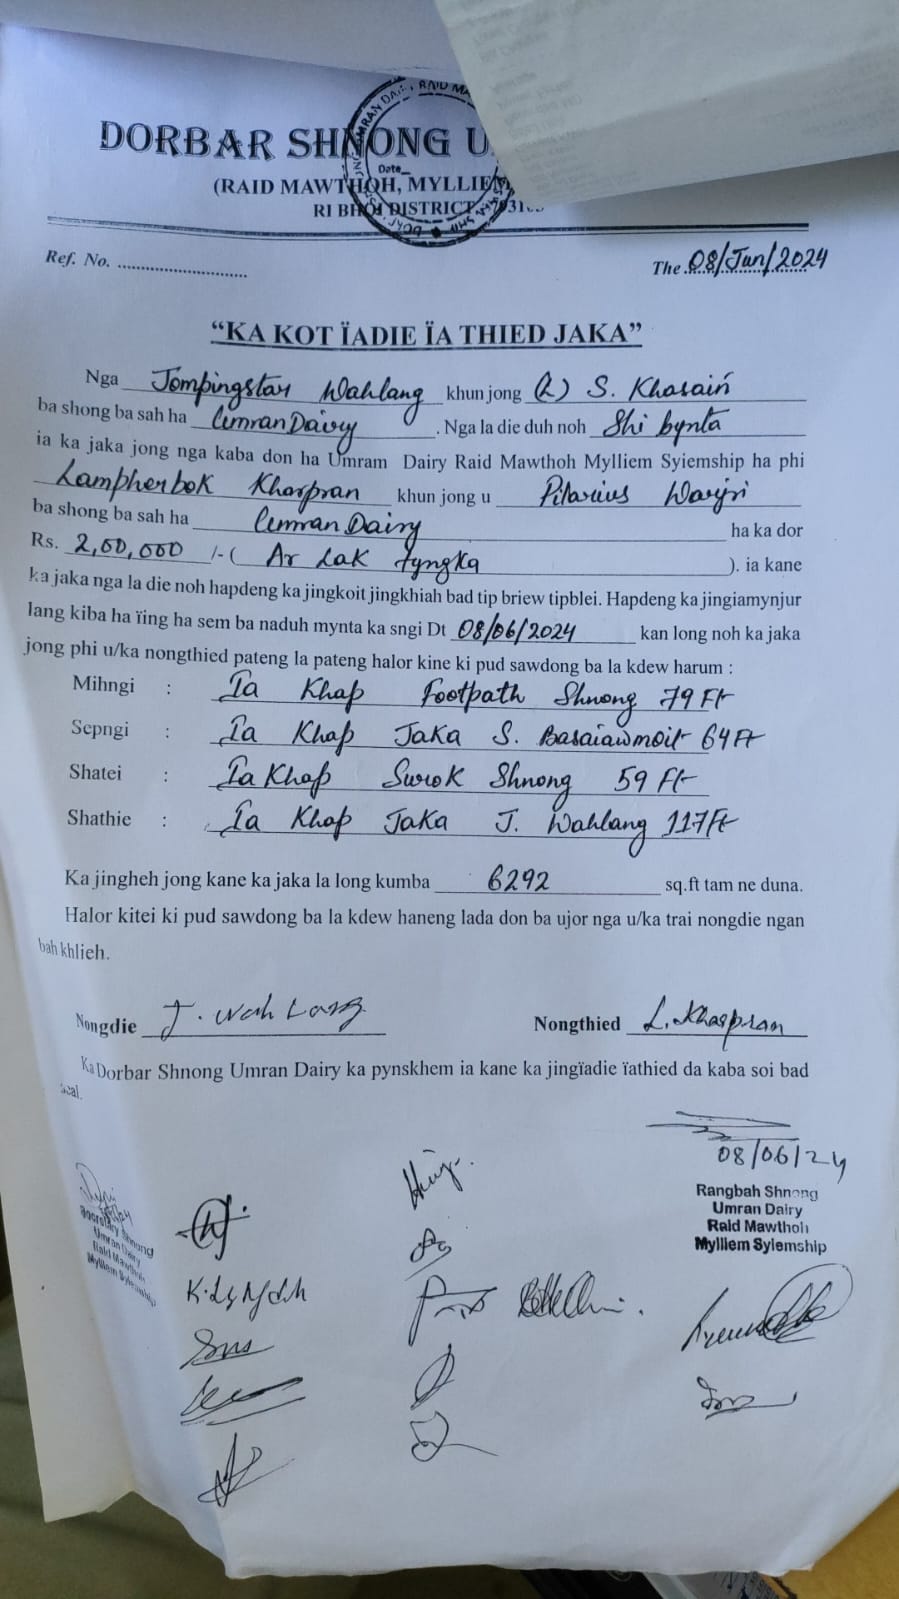 DORBAR SHNONG U
(RAID MAWTHOH, MYLLIEM
RI BHOI DISTRICT
Ref. No. ............................
The 08/Jun/2024
"KA KOT ÏADIE ÏA THIED JAKA"
Nga Jompingstar Wahlang khun jong (L) S. Khasain
ba shong ba sah ha Umran Dairy . Nga la die duh noh Shi bynta
ia ka jaka jong nga kaba don ha Umram Dairy Raid Mawthoh Mylliem Syiemship ha phi
Lampherbok Kharpran khun jong u Pilarius Warjri
ba shong ba sah ha Umran Dairy ha ka dor
Rs. 2,00,000 /-( Ar Lak tyngka ). ia kane
ka jaka nga la die noh hapdeng ka jingkoit jingkhiah bad tip briew tipblei. Hapdeng ka jingiamynjur
lang kiba ha ïing ha sem ba naduh mynta ka sngi Dt 08/06/2024 kan long noh ka jaka
jong phi u/ka nongthied pateng la pateng halor kine ki pud sawdong ba la kdew harum :
Mihngi : Ïa Khap Footpath Shnong 79 Ft
Sepngi : Ïa Khap Jaka S. Basaiawmoit 64 Ft
Shatei : Ïa Khap Surok Shnong 59 Ft
Shathie : Ïa Khap Jaka J. Wahlang 117 Ft
Ka jingheh jong kane ka jaka la long kumba 6292 sq.ft tam ne duna.
Halor kitei ki pud sawdong ba la kdew haneng lada don ba ujor nga u/ka trai nongdie ngan
bah khlieh.
Nongdie J. Wah Lang Nongthied L. Kharpran
Ka Dorbar Shnong Umran Dairy ka pynskhem ia kane ka jingïadie ïathied da kaba soi bad
seal.
08/06/24
Rangbah Shnong
Umran Dairy
Raid Mawthoh
Mylliem Syiemship
Secretary Shnong
Umran Dairy
Raid Mawthoh
Mylliem Syiemship